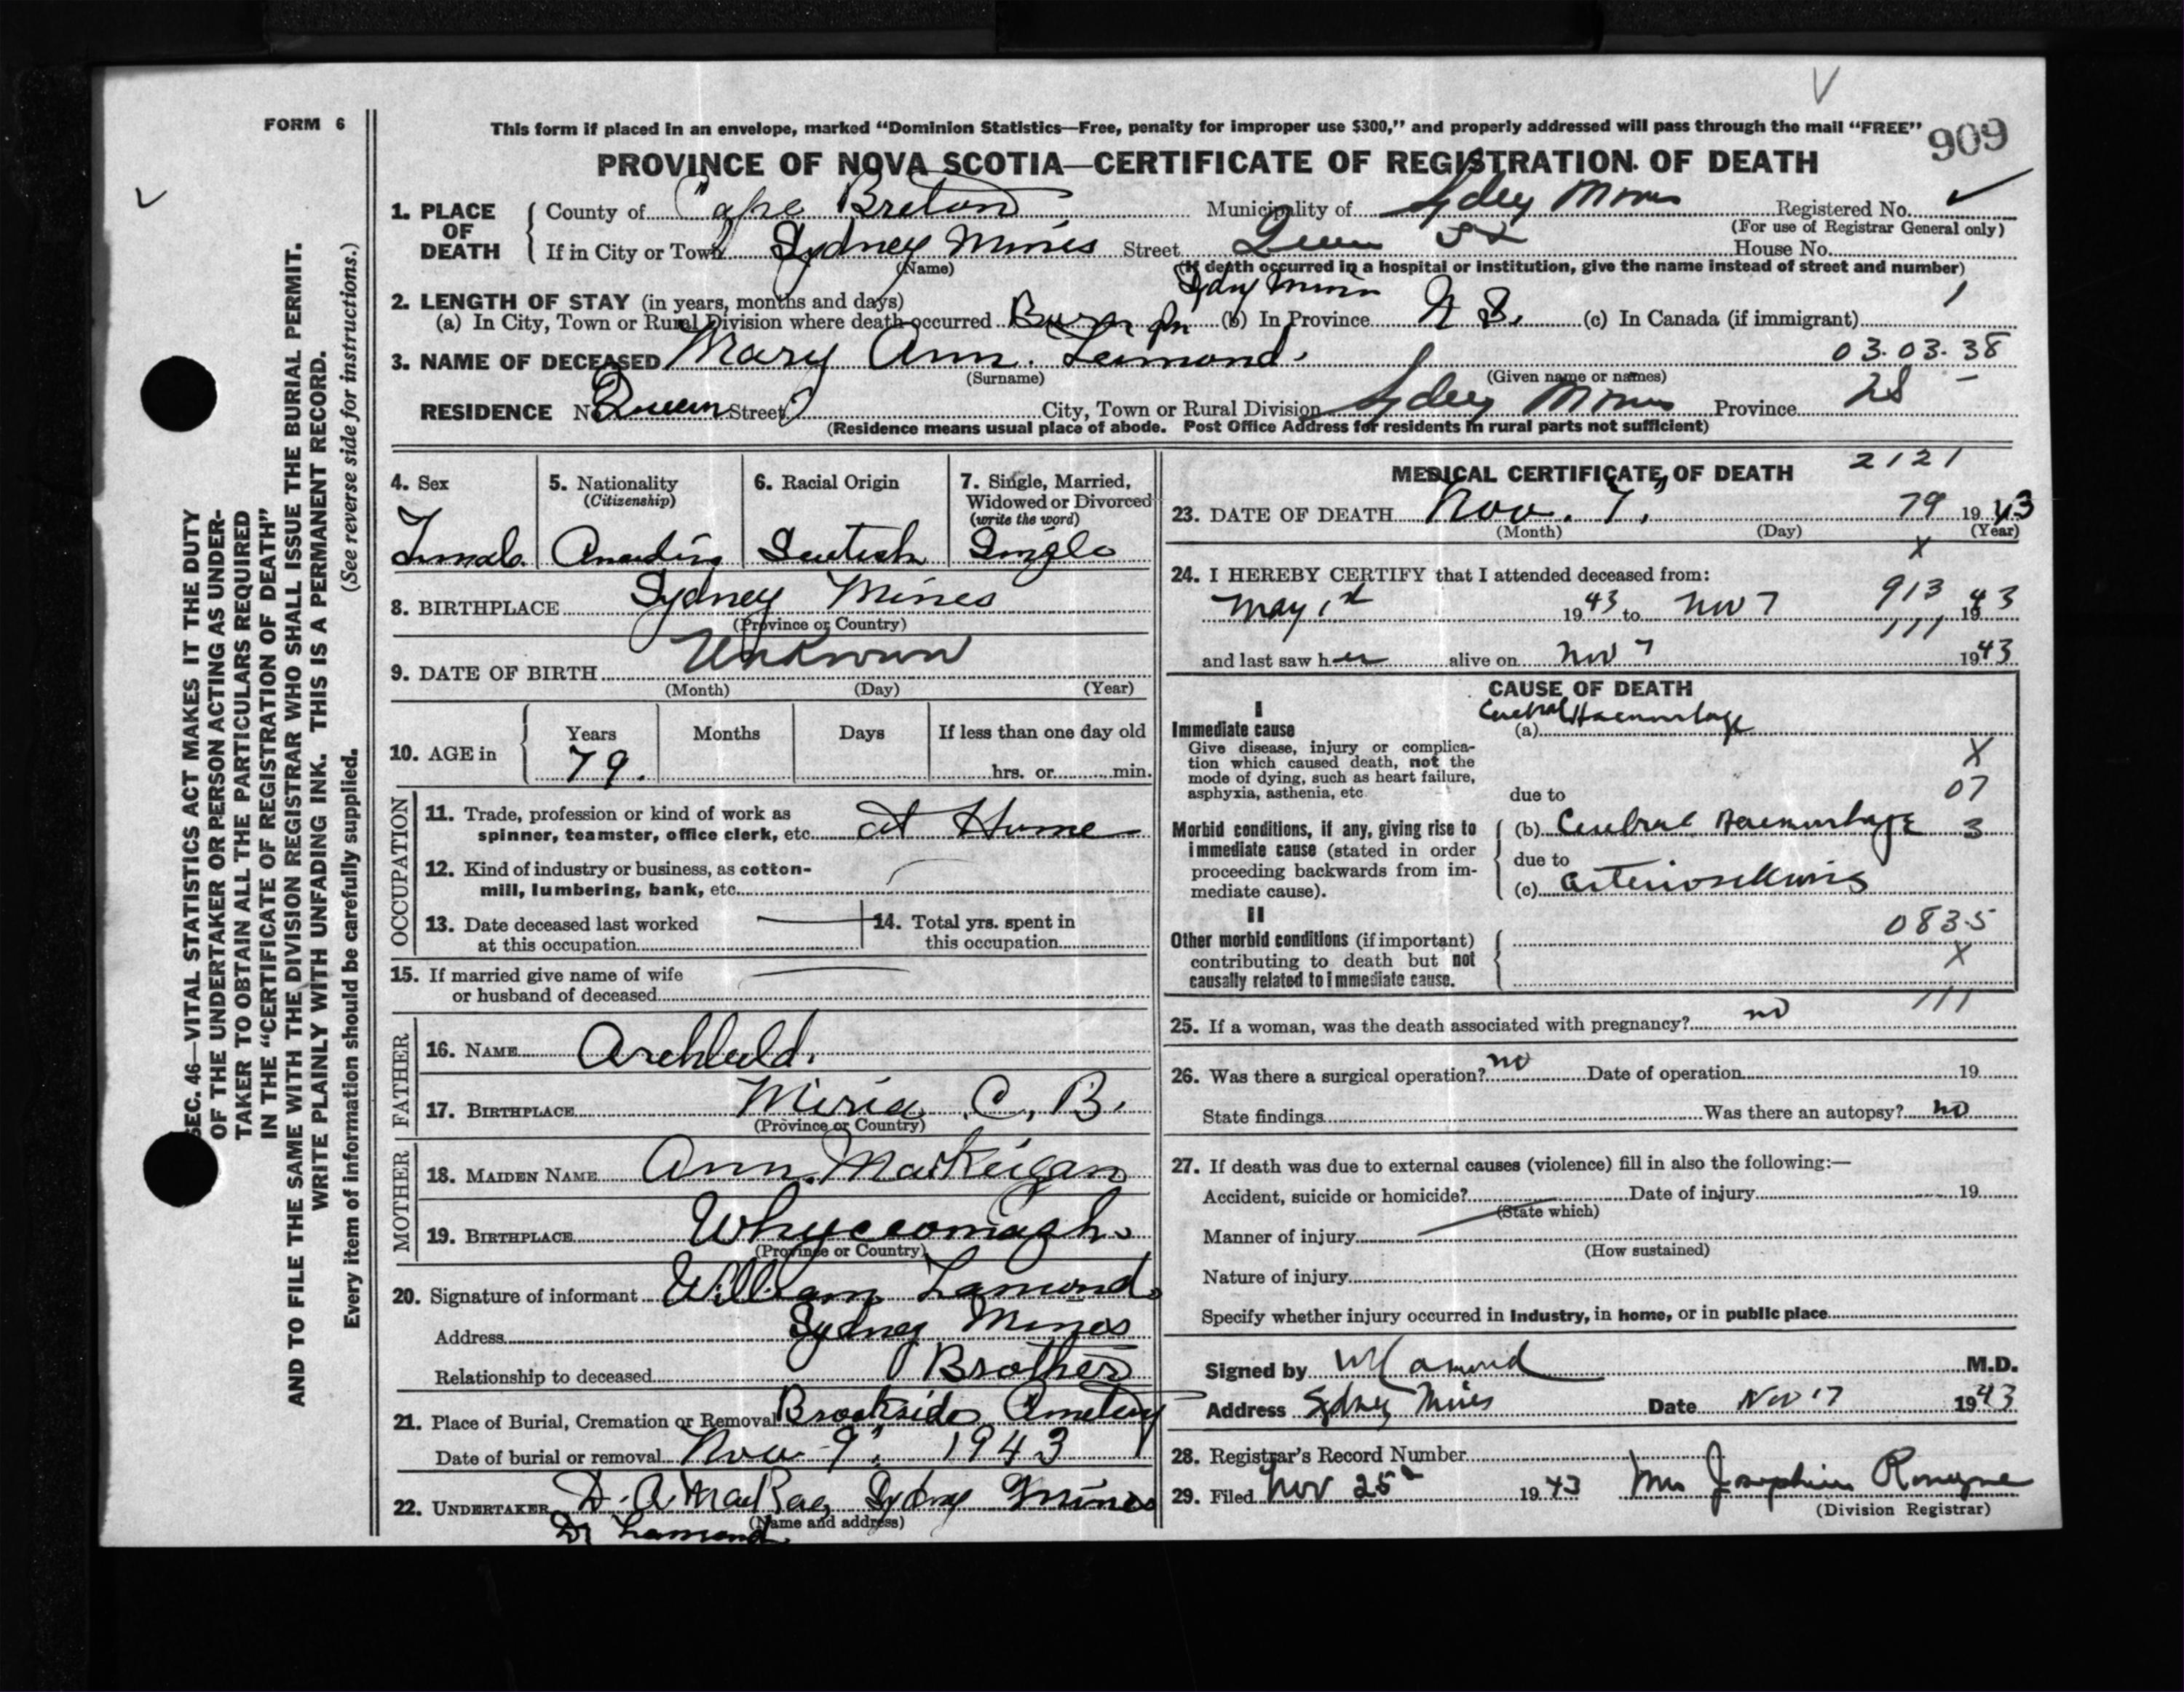 FORM 6
This form if placed in an envelope, marked “Dominion Statistics—Free, penalty for improper use $300,” and properly addressed will pass through the mail “FREE”
909
PROVINCE OF NOVA SCOTIA—CERTIFICATE OF REGISTRATION OF DEATH
1. PLACE OF DEATH
County of Cape Breton Municipality of Sydney Mines Registered No.
(For use of Registrar General only)
If in City or Town Sydney Mines Street Queen St House No.
(Name)
(If death occurred in a hospital or institution, give the name instead of street and number)
2. LENGTH OF STAY (in years, months and days) Sydney Mines
(a) In City, Town or Rural Division where death occurred Born in (b) In Province N S. (c) In Canada (if immigrant) 1
3. NAME OF DECEASED Mary Ann. Lamond. 03.03.38
(Surname) (Given name or names)
RESIDENCE No. Queen Street City, Town or Rural Division Sydney Mines Province 28 -
(Residence means usual place of abode. Post Office Address for residents in rural parts not sufficient)
4. Sex 5. Nationality 6. Racial Origin 7. Single, Married,
(Citizenship) Widowed or Divorced
(write the word)
Female Canadian Scotish Single
8. BIRTHPLACE Sydney Mines
(Province or Country)
9. DATE OF BIRTH Unknown
(Month) (Day) (Year)
10. AGE in Years Months Days If less than one day old
79. hrs. or min.
OCCUPATION
11. Trade, profession or kind of work as
spinner, teamster, office clerk, etc. at Home
12. Kind of industry or business, as cotton-
mill, lumbering, bank, etc.
13. Date deceased last worked
at this occupation
14. Total yrs. spent in
this occupation
15. If married give name of wife
or husband of deceased
FATHER
16. NAME Archbald.
17. BIRTHPLACE Miria C. B.
(Province or Country)
MOTHER
18. MAIDEN NAME Ann. MacKeigan
19. BIRTHPLACE Whycocomagh.
(Province or Country)
20. Signature of informant William Lamond.
Address Sydney Mines
Relationship to deceased Brother
21. Place of Burial, Cremation or Removal Brookside Cemetery
Date of burial or removal Nov 9, 1943
22. UNDERTAKER D. A MacRae, Sydney Mines
(Name and address)
Dr Lamond
MEDICAL CERTIFICATE OF DEATH 2121
23. DATE OF DEATH Nov. 7, 79 1943
(Month) (Day) (Year)
X
24. I HEREBY CERTIFY that I attended deceased from: 913
May 1st 1943 to Nov 7 1943
111
and last saw her alive on Nov 7 1943
CAUSE OF DEATH
I
Immediate cause
Give disease, injury or complica-
tion which caused death, not the
mode of dying, such as heart failure,
asphyxia, asthenia, etc.
(a) Cerebral Haemorrhage
X
due to 07
Morbid conditions, if any, giving rise to
immediate cause (stated in order
proceeding backwards from im-
mediate cause).
(b) Cerebral Haemorrhage 3
due to
(c) Arteriosclerosis
II
Other morbid conditions (if important)
contributing to death but not
causally related to immediate cause.
0835
X
111
25. If a woman, was the death associated with pregnancy? no
26. Was there a surgical operation? no Date of operation 19
State findings Was there an autopsy? no
27. If death was due to external causes (violence) fill in also the following:—
Accident, suicide or homicide? Date of injury 19
(State which)
Manner of injury
(How sustained)
Nature of injury
Specify whether injury occurred in industry, in home, or in public place
Signed by Lamond M.D.
Address Sydney Mines Date Nov 17 1943
28. Registrar's Record Number
29. Filed Nov 25 1943 Mrs Josephine
(Division Registrar)
SEC. 46—VITAL STATISTICS ACT MAKES IT THE DUTY
OF THE UNDERTAKER OR PERSON ACTING AS UNDER-
TAKER TO OBTAIN ALL THE PARTICULARS REQUIRED
IN THE “CERTIFICATE OF REGISTRATION OF DEATH”
AND TO FILE THE SAME WITH THE DIVISION REGISTRAR WHO SHALL ISSUE THE BURIAL PERMIT.
WRITE PLAINLY WITH UNFADING INK. THIS IS A PERMANENT RECORD.
Every item of information should be carefully supplied. (See reverse side for instructions.)